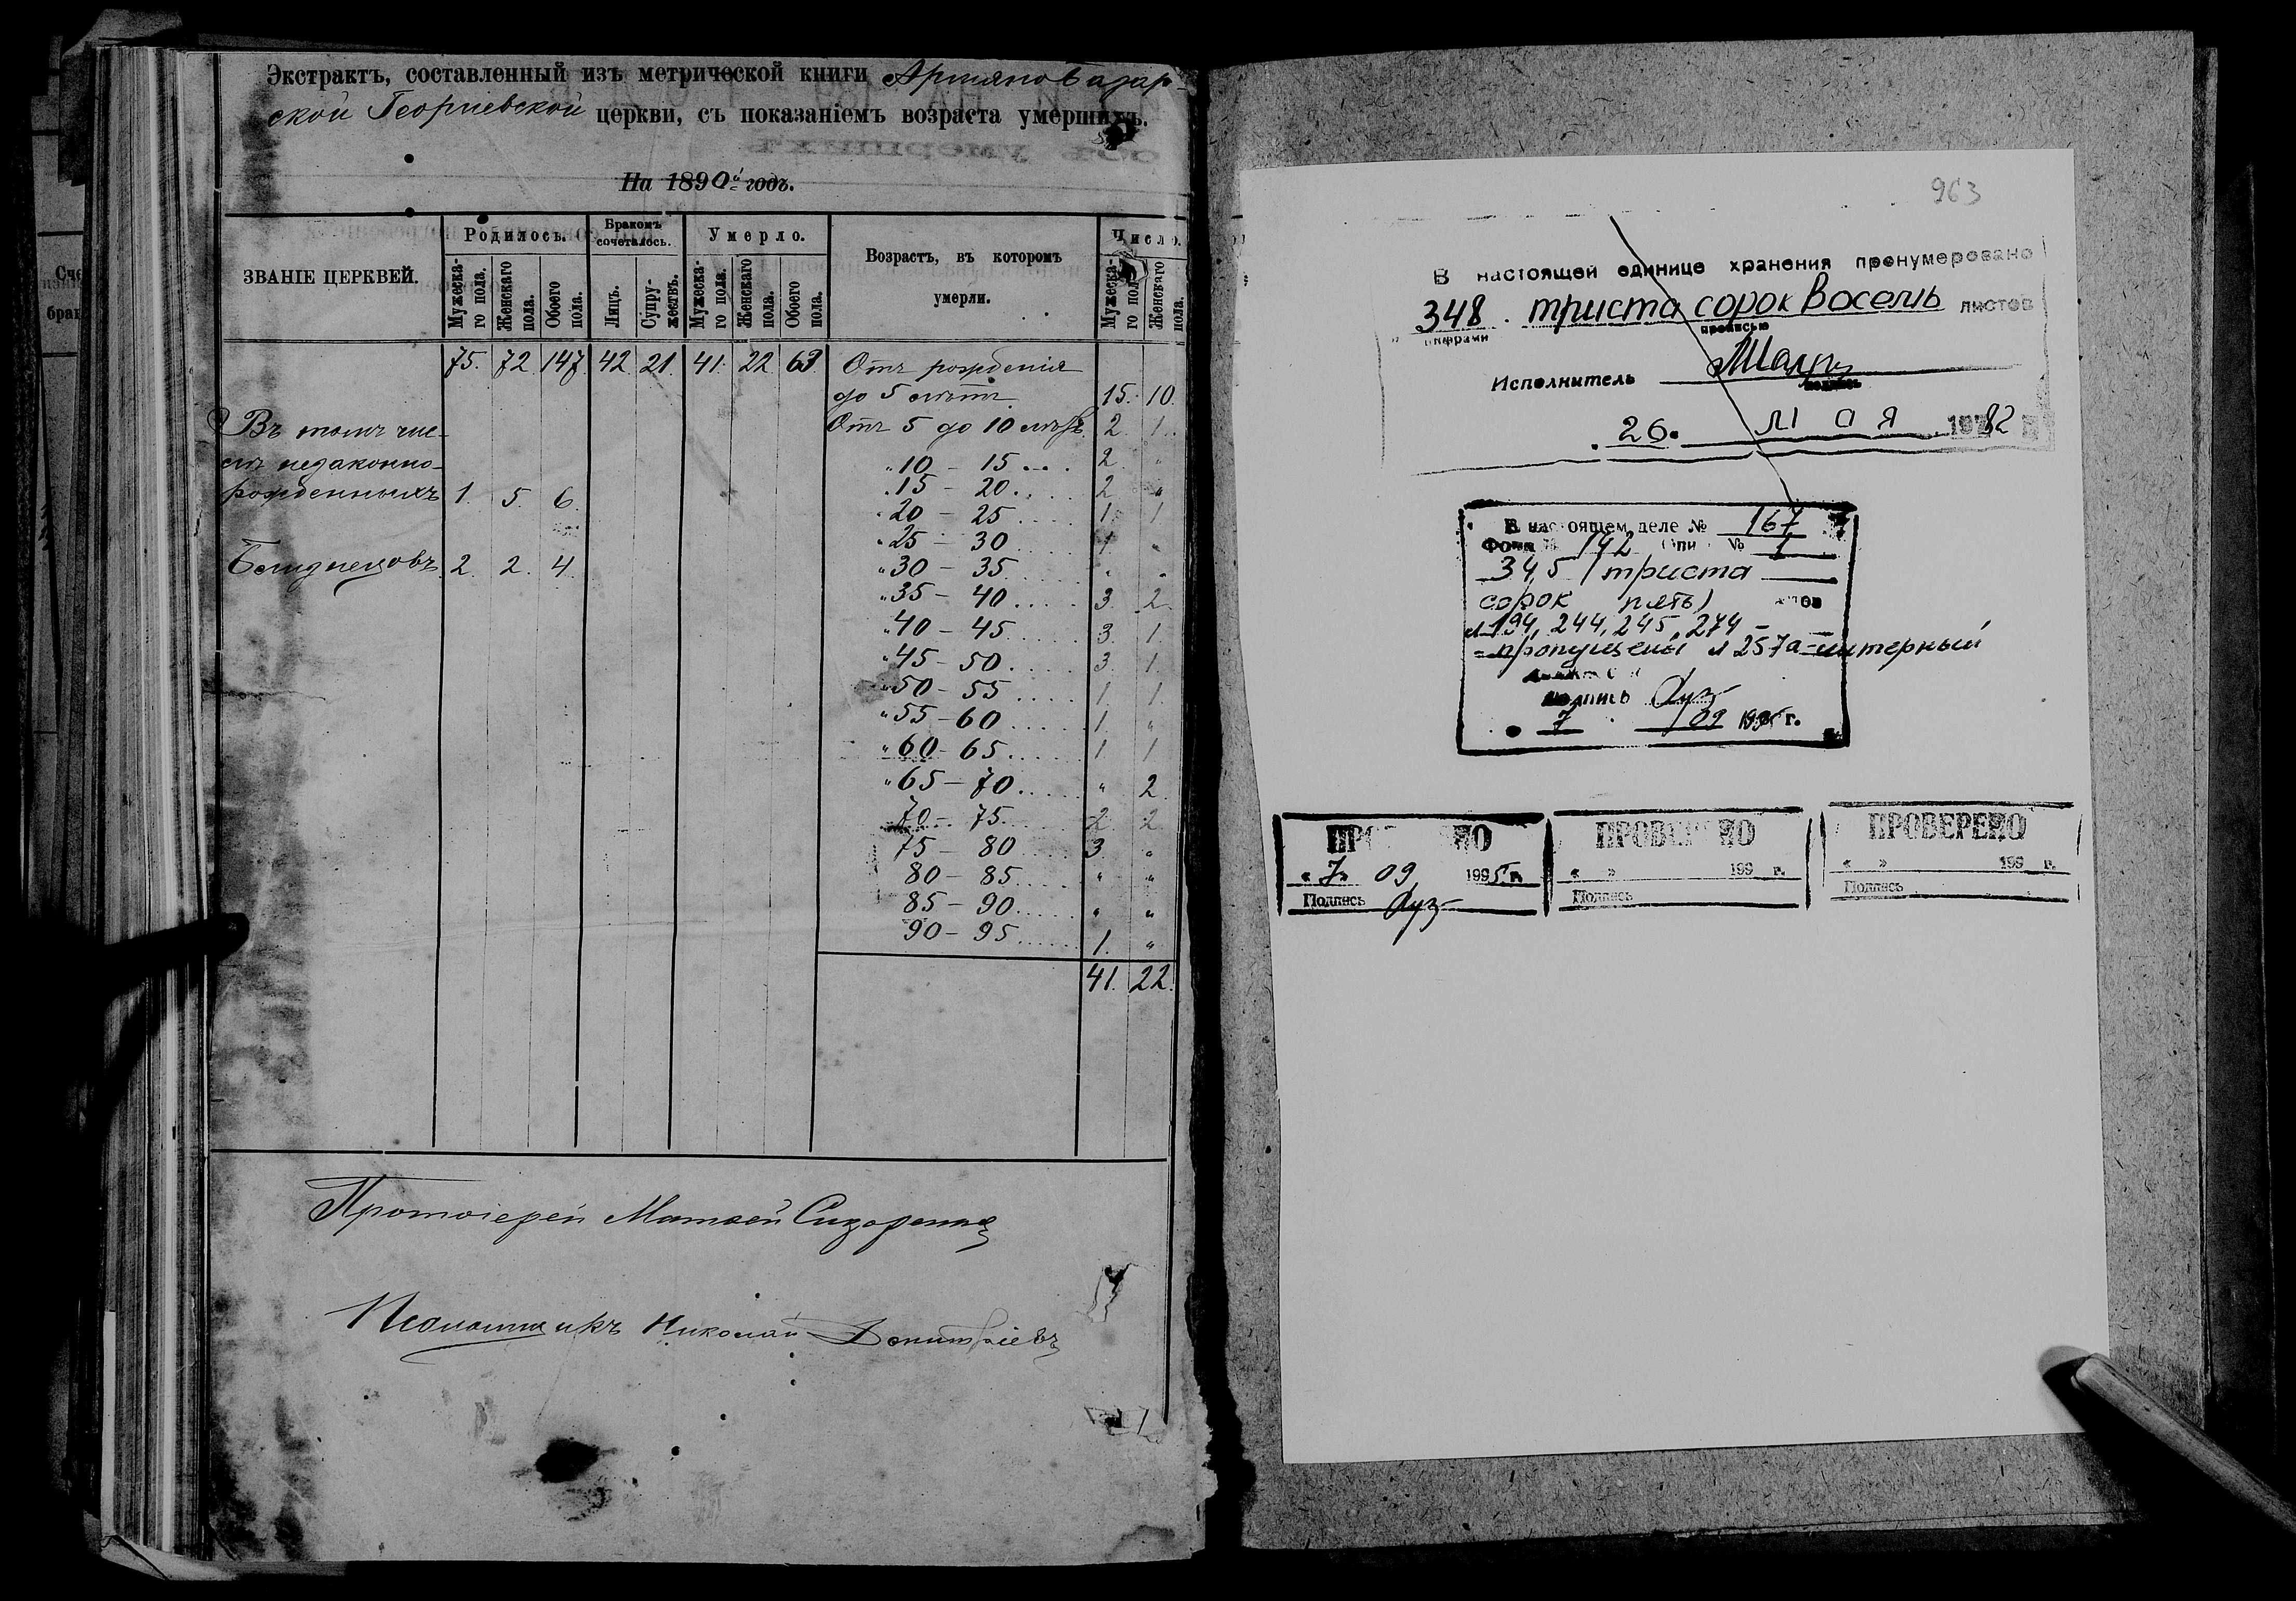 Экстрактъ, составленный изъ метрической книги Армянобазар-
ской Георгіевской церкви, съ показаніемъ возраста умершихъ.
На 1890й годъ.
ЗВАНІЕ ЦЕРКВЕЙ. Родилось. Бракомъ сочеталось. Умерло. Возрастъ, въ которомъ умерли. Число.
Мужеска-го пола. Женскаго пола. Обоего пола. Лицъ. Супру-жествъ. Мужеска-го пола. Женскаго пола. Обоего пола. Мужеска-го пола. Женскаго пола.
75. 72. 147. 42. 21. 41. 22. 63. Отъ рожденія
до 5 лѣтъ 15. 10.
Въ томъ чис- Отъ 5 до 10 лѣтъ 2. 1.
лѣ незаконно- " 10 - 15 .... 2. "
рожденныхъ 1. 5. 6. " 15 - 20 .... 2. "
" 20 - 25 .... 1. 1
" 25 - 30 .... 1 "
Близнецовъ 2. 2. 4. " 30 - 35 .... " "
" 35 - 40 .... 3. 2.
" 40 - 45 .... 3. 1.
" 45 - 50 .... 3. 1.
" 50 - 55 .... 1. 1.
" 55 - 60 .... 1. "
" 60 - 65 .... 1. 1
" 65 - 70 .... " 2.
70 - 75 .... 2. 2.
75 - 80 .... 3. "
80 - 85 .... " "
85 - 90 .... " "
90 - 95 .... 1. "
41. 22.
Протоіерей Матвей Сизоренко
Псаломщикъ Николай Димитріевъ
963
В настоящей единице хранения пронумеровано
348. триста сорок восемь листов
цифрами прописью
Исполнитель
подпись
26. мая 1982
В настоящем деле № 167
Фонд № 142 Опись № 1
345 (триста
сорок пять) листов
л 194, 244, 245, 274 -
- пропущены л 257а - литерный
Должность
подпись
7 09 1995 г.
ПРОВЕРЕНО
« 7 » 09 1995 г.
Подпись
ПРОВЕРЕНО
« » 199 г.
Подпись
ПРОВЕРЕНО
« » 199 г.
Подпись